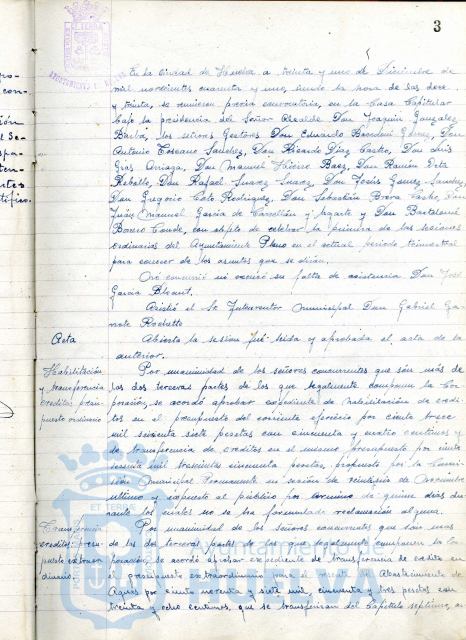 3
En la Ciudad de Huelva a treinta y uno de Diciembre de
mil novecientos cuarenta y uno, siendo la hora de las doce
y treinta, se reunieron previa convocatoria, en la Casa Capitular
bajo la presidencia del Señor Alcalde Don Joaquín González
Barba, los señores Gestores Don Eduardo Don
Antonio Toscano Sánchez, Don Ricardo Díaz Don Luis
Arriaga, Don Manuel Báez, Don Ramón
Rebollo, Don Rafael Suárez Suárez, Don Jesús Gómez Sánchez
Don Gregorio Rodríguez, Don Sebastián Don
Juan Manuel García de y Ugarte y Don Bartolomé
Conde, con objeto de celebrar la primera de las sesiones
ordinarias del Ayuntamiento Pleno en el actual período trimestral
para conocer de los asuntos que se dirán.
No concurrió ni excusó su falta de asistencia Don José
García
Asistió el Sr. Interventor municipal Don Gabriel
Acta
Abierta la sesión fué leida y aprobada el acta de la
anterior.
Habilitación
y transferencia
creditos presu-
puesto ordinario
Por unanimidad de los señores concurrentes que son más de
las dos terceras partes de los que legalmente componen la Cor-
poración, se acordó aprobar expediente de habilitación de crédi-
tos en el presupuesto del corriente ejercicio por ciento trece
mil siete pesetas con cincuenta y cuatro centimos y
de transferencia de creditos en el mismo presupuesto por ciento
sesenta mil trescientas cincuenta pesetas, propuesto por la Comi-
sión Municipal Permanente en sesión de de Noviembre
último y expuesto al público por termino de quince días du-
rante los cuales no se ha formulado reclamación alguna.
Transferencia
creditos presu-
puesto extraor-
dinario
Por unanimidad de los señores concurrentes que son mas
de las dos terceras partes de los que legalmente componen la Cor-
poración se acordó aprobar expediente de transferencia de credito en
el presupuesto extraordinario para el rescate del Abastecimiento de
Aguas por ciento noventa y siete mil, cincuenta y tres pesetas con
treinta y ocho centimos, que se transfieren del Capítulo septimo, ar-
Ayuntamiento de
HUELVA